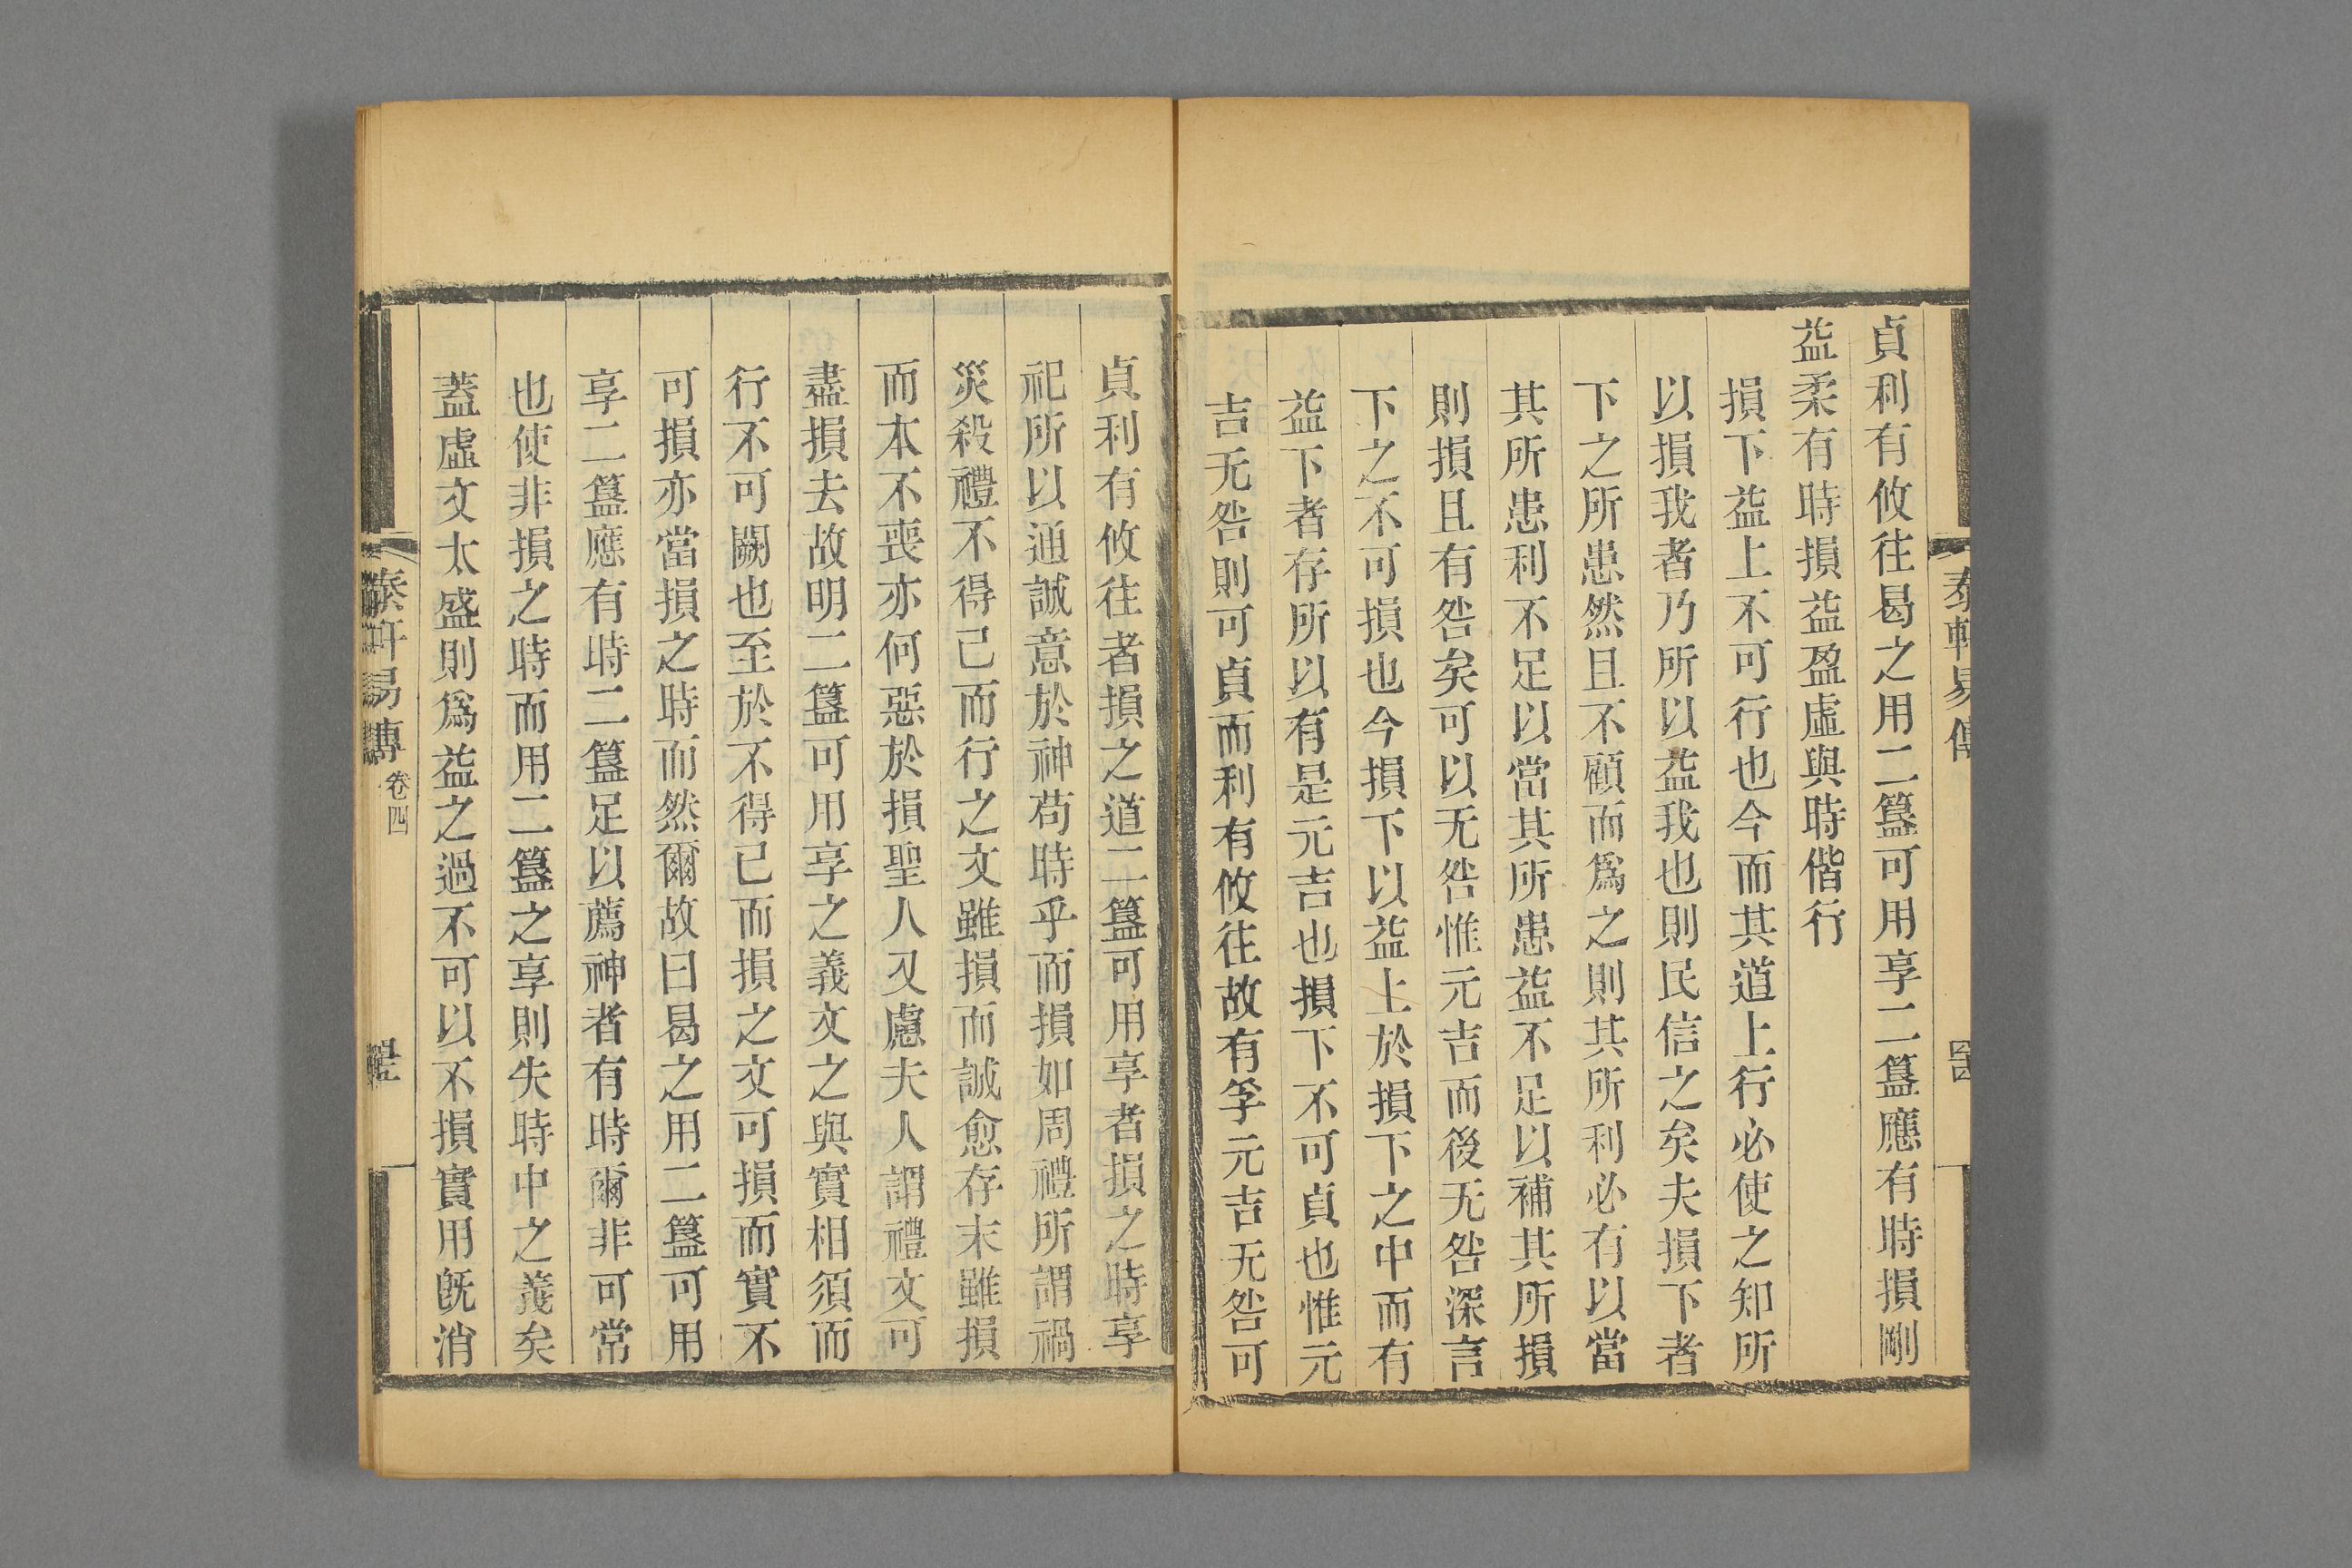 貞利有攸往曷之用二簋可用享二簋應有時損剛
益柔有時損益盈虛與時偕行
損下益上不可行也今而其道上行必使之知所
以損我者乃所以益我也則民信之矣夫損下者
下之所患然且不顧而爲之則其所利必有以當
其所患利不足以當其所患益不足以補其所損
則損且有咎矣可以无咎惟元吉而後无咎深言
下之不可損也今損下以益上於損下之中而有
益下者存所以有是元吉也損下不可貞也惟元
吉无咎則可貞而利有攸往故有孚元吉无咎可
貞利有攸往者損之道二簋可用享者損之時享
祀所以通誠意於神苟時乎而損如周禮所謂禍
災殺禮不得已而行之文雖損而誠愈存末雖損
而本不喪亦何惡於損聖人又慮夫人謂禮文可
盡損去故明二簋可用享之義文之與實相須而
行不可闕也至於不得已而損之文可損而實不
可損亦當損之時而然爾故曰曷之用二簋可用
享二簋應有時二簋足以薦神者有時爾非可常
也使非損之時而用二簋之享則失時中之義矣
蓋虛文太盛則爲益之過不可以不損實用旣消
泰軒易傳 卷四